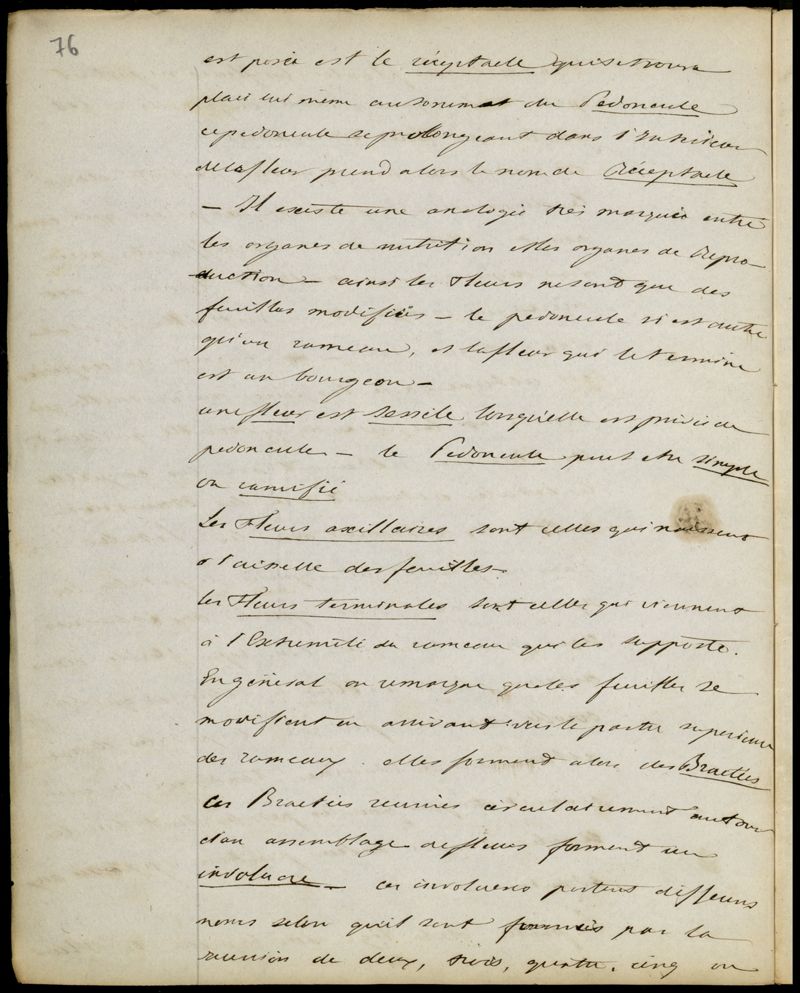 76
est posée est le réceptacle qui se trouve
placé lui même au sommet du Pedoncule
ce pedoncule se prolongeant dans l'Intérieur
de la fleur prend alors le nom de Réceptacle
— Il existe une analogie très marquée entre
les organes de nutrition et les organes de Repro-
duction — ainsi les Fleurs ne sont que des
feuilles modifiées — le pedoncule n'est autre
qu'un rameau, et la fleur qui le termine
est un bourgeon —
une fleur est sessile lorsqu'elle est privée de
pedoncule — le Pedoncule peut etre simple
ou ramifié
Les Fleurs axillaires sont celles qui naissent
a l'aisselle des feuilles —
les Fleurs terminales sont celles qui viennent
à l'Extremité du rameau qui les supporte.
En général on remarque que les feuilles se
modifient en arrivant vers la partie superieure
des rameaux. elles forment alors des Bractées
Ces Bractées reunies circulairement autour
d'un assemblage de fleurs forment un
involucre — ces involucres portent differens
noms selon qu'il sont formés par la
reunion de deux, trois, quatre, cinq ou